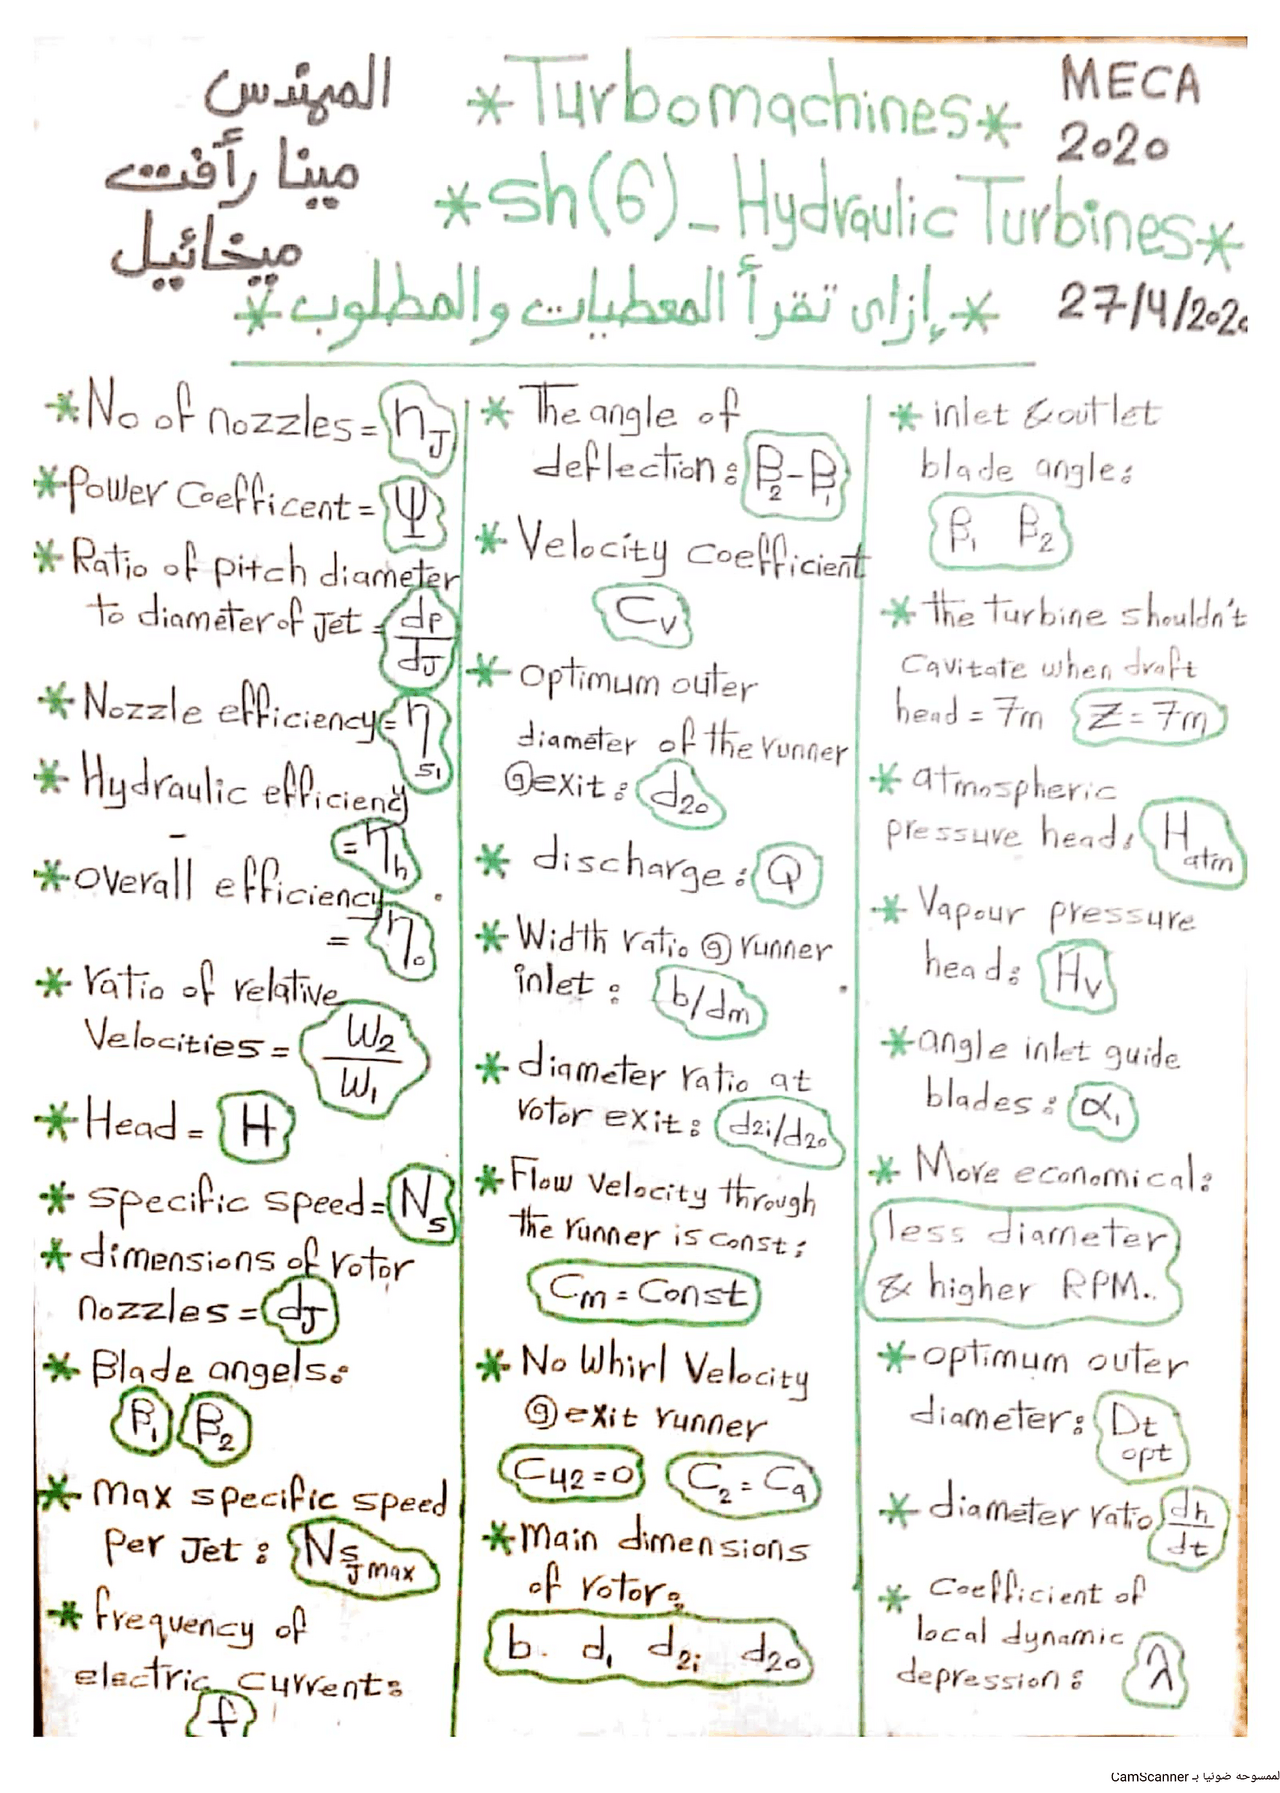 المهندس
مينا رأفت
ميخائيل
*Turbomachines*
*sh(6)_Hydraulic Turbines*
*إزاى تقرأ المعطيات والمطلوب*
MECA
2020
27/4/2020
*No of nozzles = n_J
*Power Coefficent = Ψ
*Ratio of pitch diameter
to diameter of Jet = dp/dJ
*Nozzle efficiency = η
*Hydraulic efficiency
= ηh
*overall efficiency
= ηo
*ratio of relative
Velocities = W2/W1
*Head = H
*specific speed = Ns
*dimensions of rotor
nozzles = dJ
*Blade angels:
β1 β2
*max specific speed
per Jet: NsJ max
*frequency of
electric current:
f
*The angle of
deflection: β2-β1
*Velocity coefficient
Cv
*optimum outer
diameter of the runner
@exit: d2o
*discharge: Q
*Width ratio @ runner
inlet: b/dm
*diameter ratio at
rotor exit: d2i/d2o
*Flow velocity through
the runner is const:
Cm = Const
*No Whirl Velocity
@ exit runner
Cu2=0 C2=Ca
*main dimensions
of rotor:
b. d1 d2i d2o
*inlet & outlet
blade angle:
β1 β2
*the turbine shouldn't
cavitate when draft
head = 7m Z=7m
*atmospheric
pressure head: H atm
*Vapour pressure
head: Hv
*angle inlet guide
blades: α1
*More economical:
less diameter
& higher RPM..
*optimum outer
diameter: Dt
opt
*diameter ratio dh/dt
*Coefficient of
local dynamic
depression: λ
الممسوحه ضوئيا بـ CamScanner